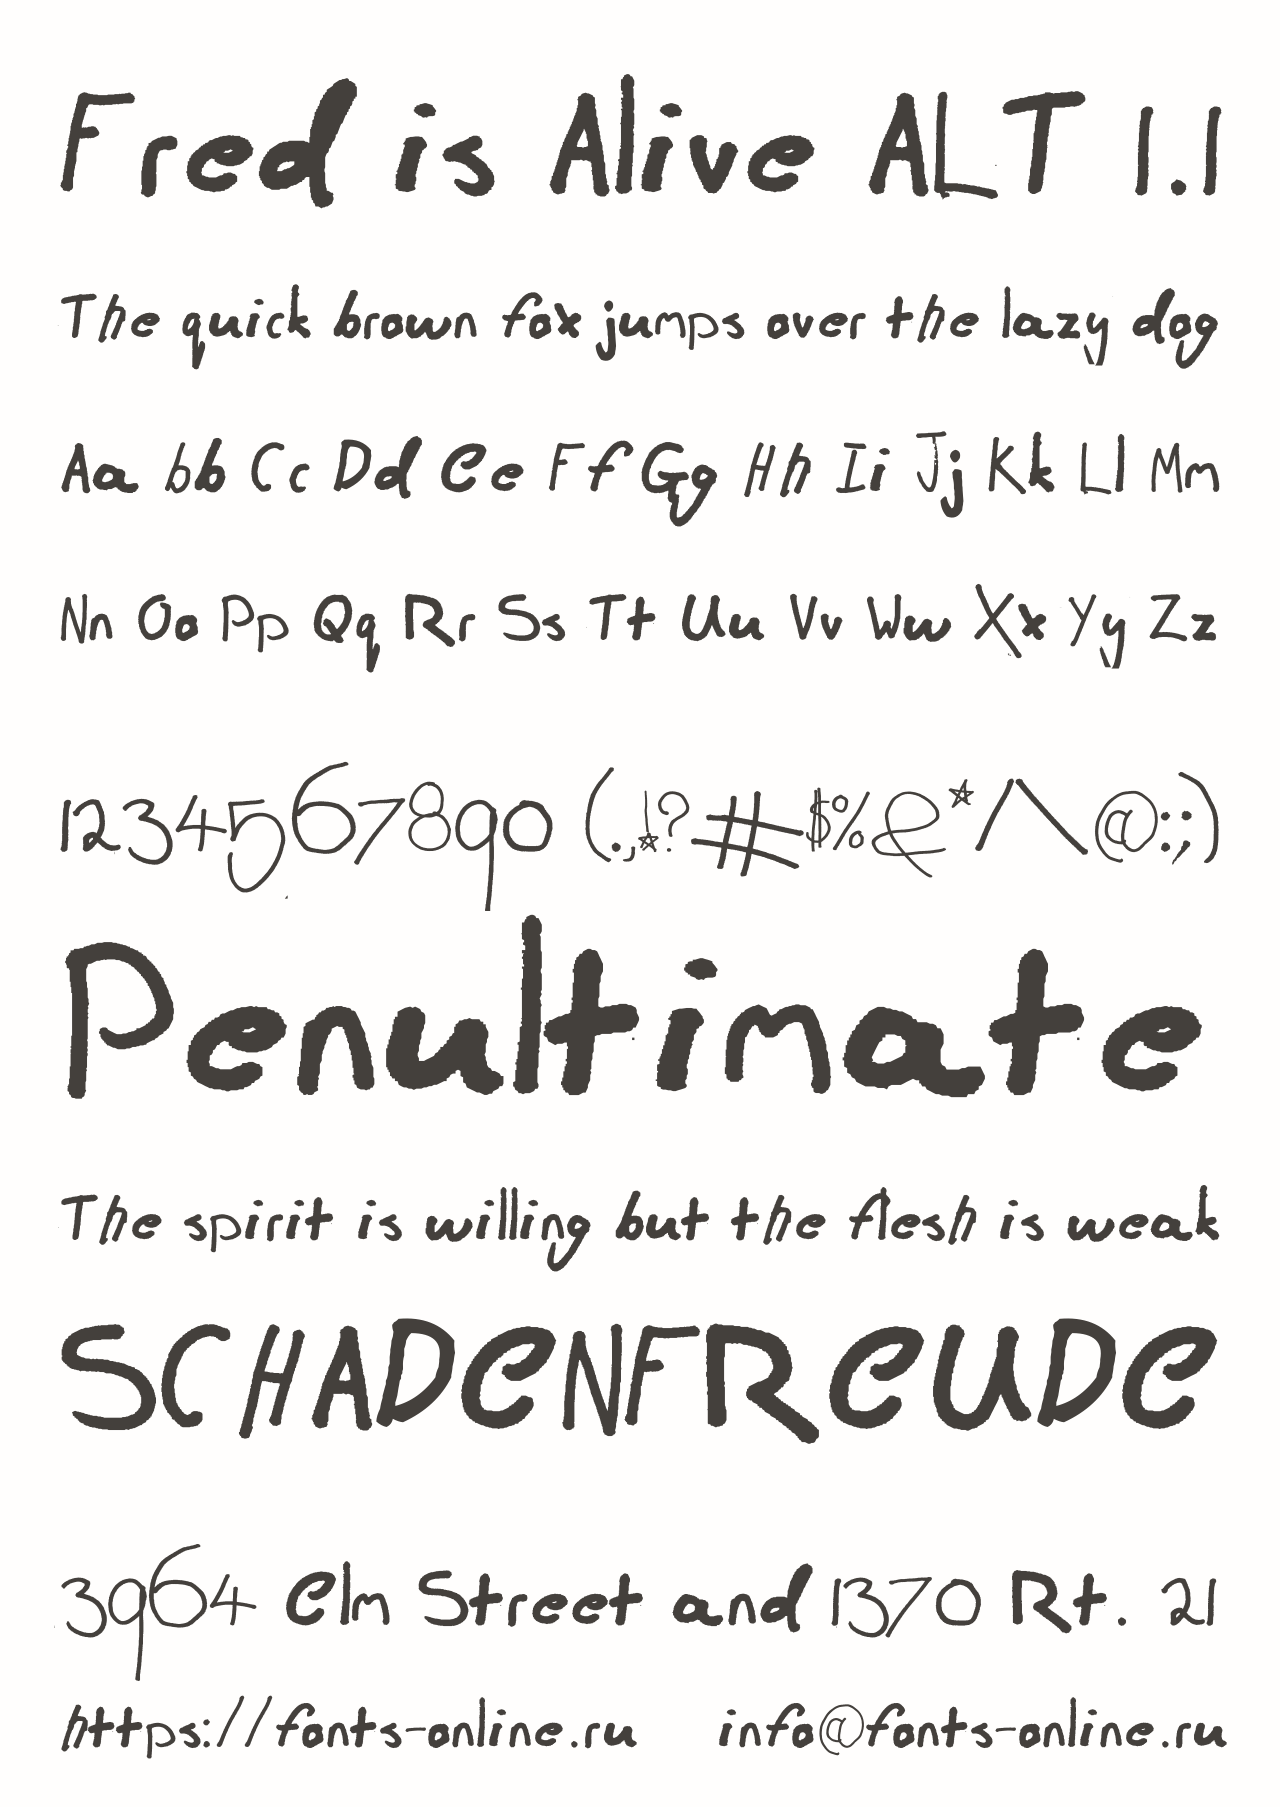 Fred is Alive ALT 1.1
The quick brown fox jumps over the lazy dog
Aa bb Cc Dd Ee Ff Gg Hh Ii Jj Kk Ll Mm
Nn Oo Pp Qq Rr Ss Tt Uu Vv Ww Xx Yy Zz
1234567890 (.,!?#$%&*/\@:;)
Penultimate
The spirit is willing but the flesh is weak
SCHADENFREUDE
3964 Elm Street and 1370 Rt. 21
https://fonts-online.ru info@fonts-online.ru